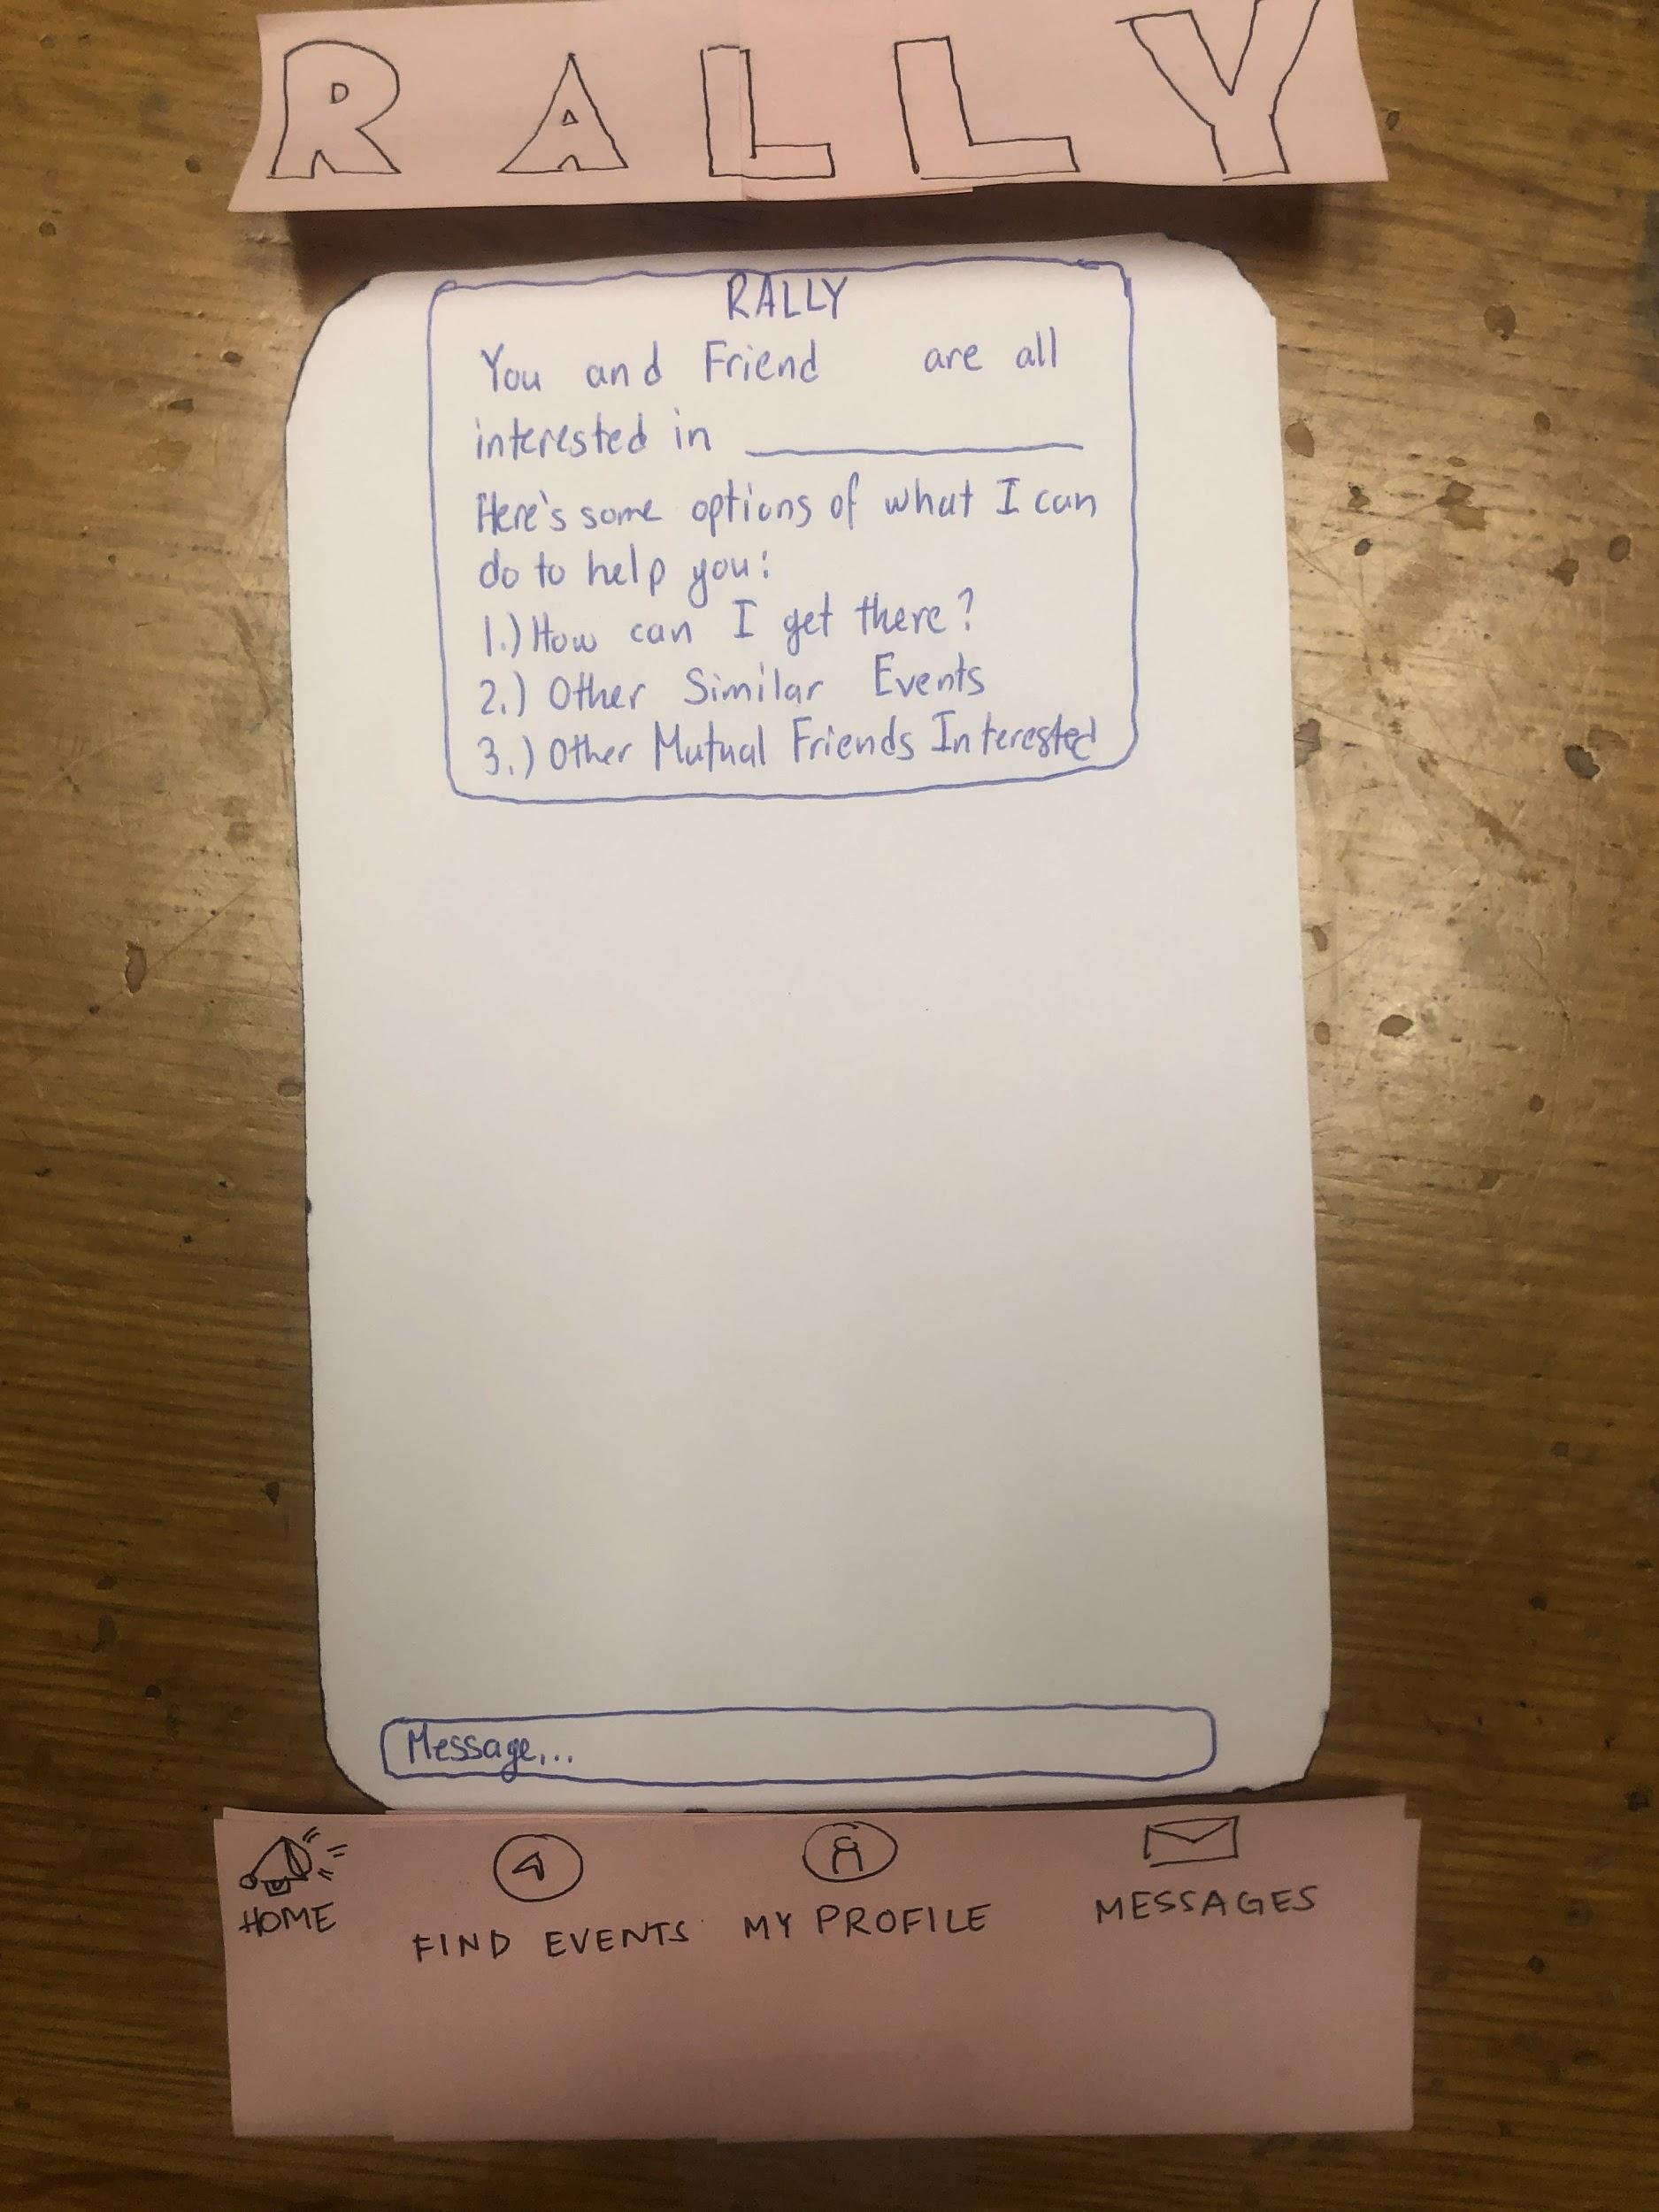 RALLY
RALLY
You and Friend are all
interested in
Here's some options of what I can
do to help you:
1.) How can I get there?
2.) Other Similar Events
3.) Other Mutual Friends Interested
Message...
HOME
FIND EVENTS
MY PROFILE
MESSAGES